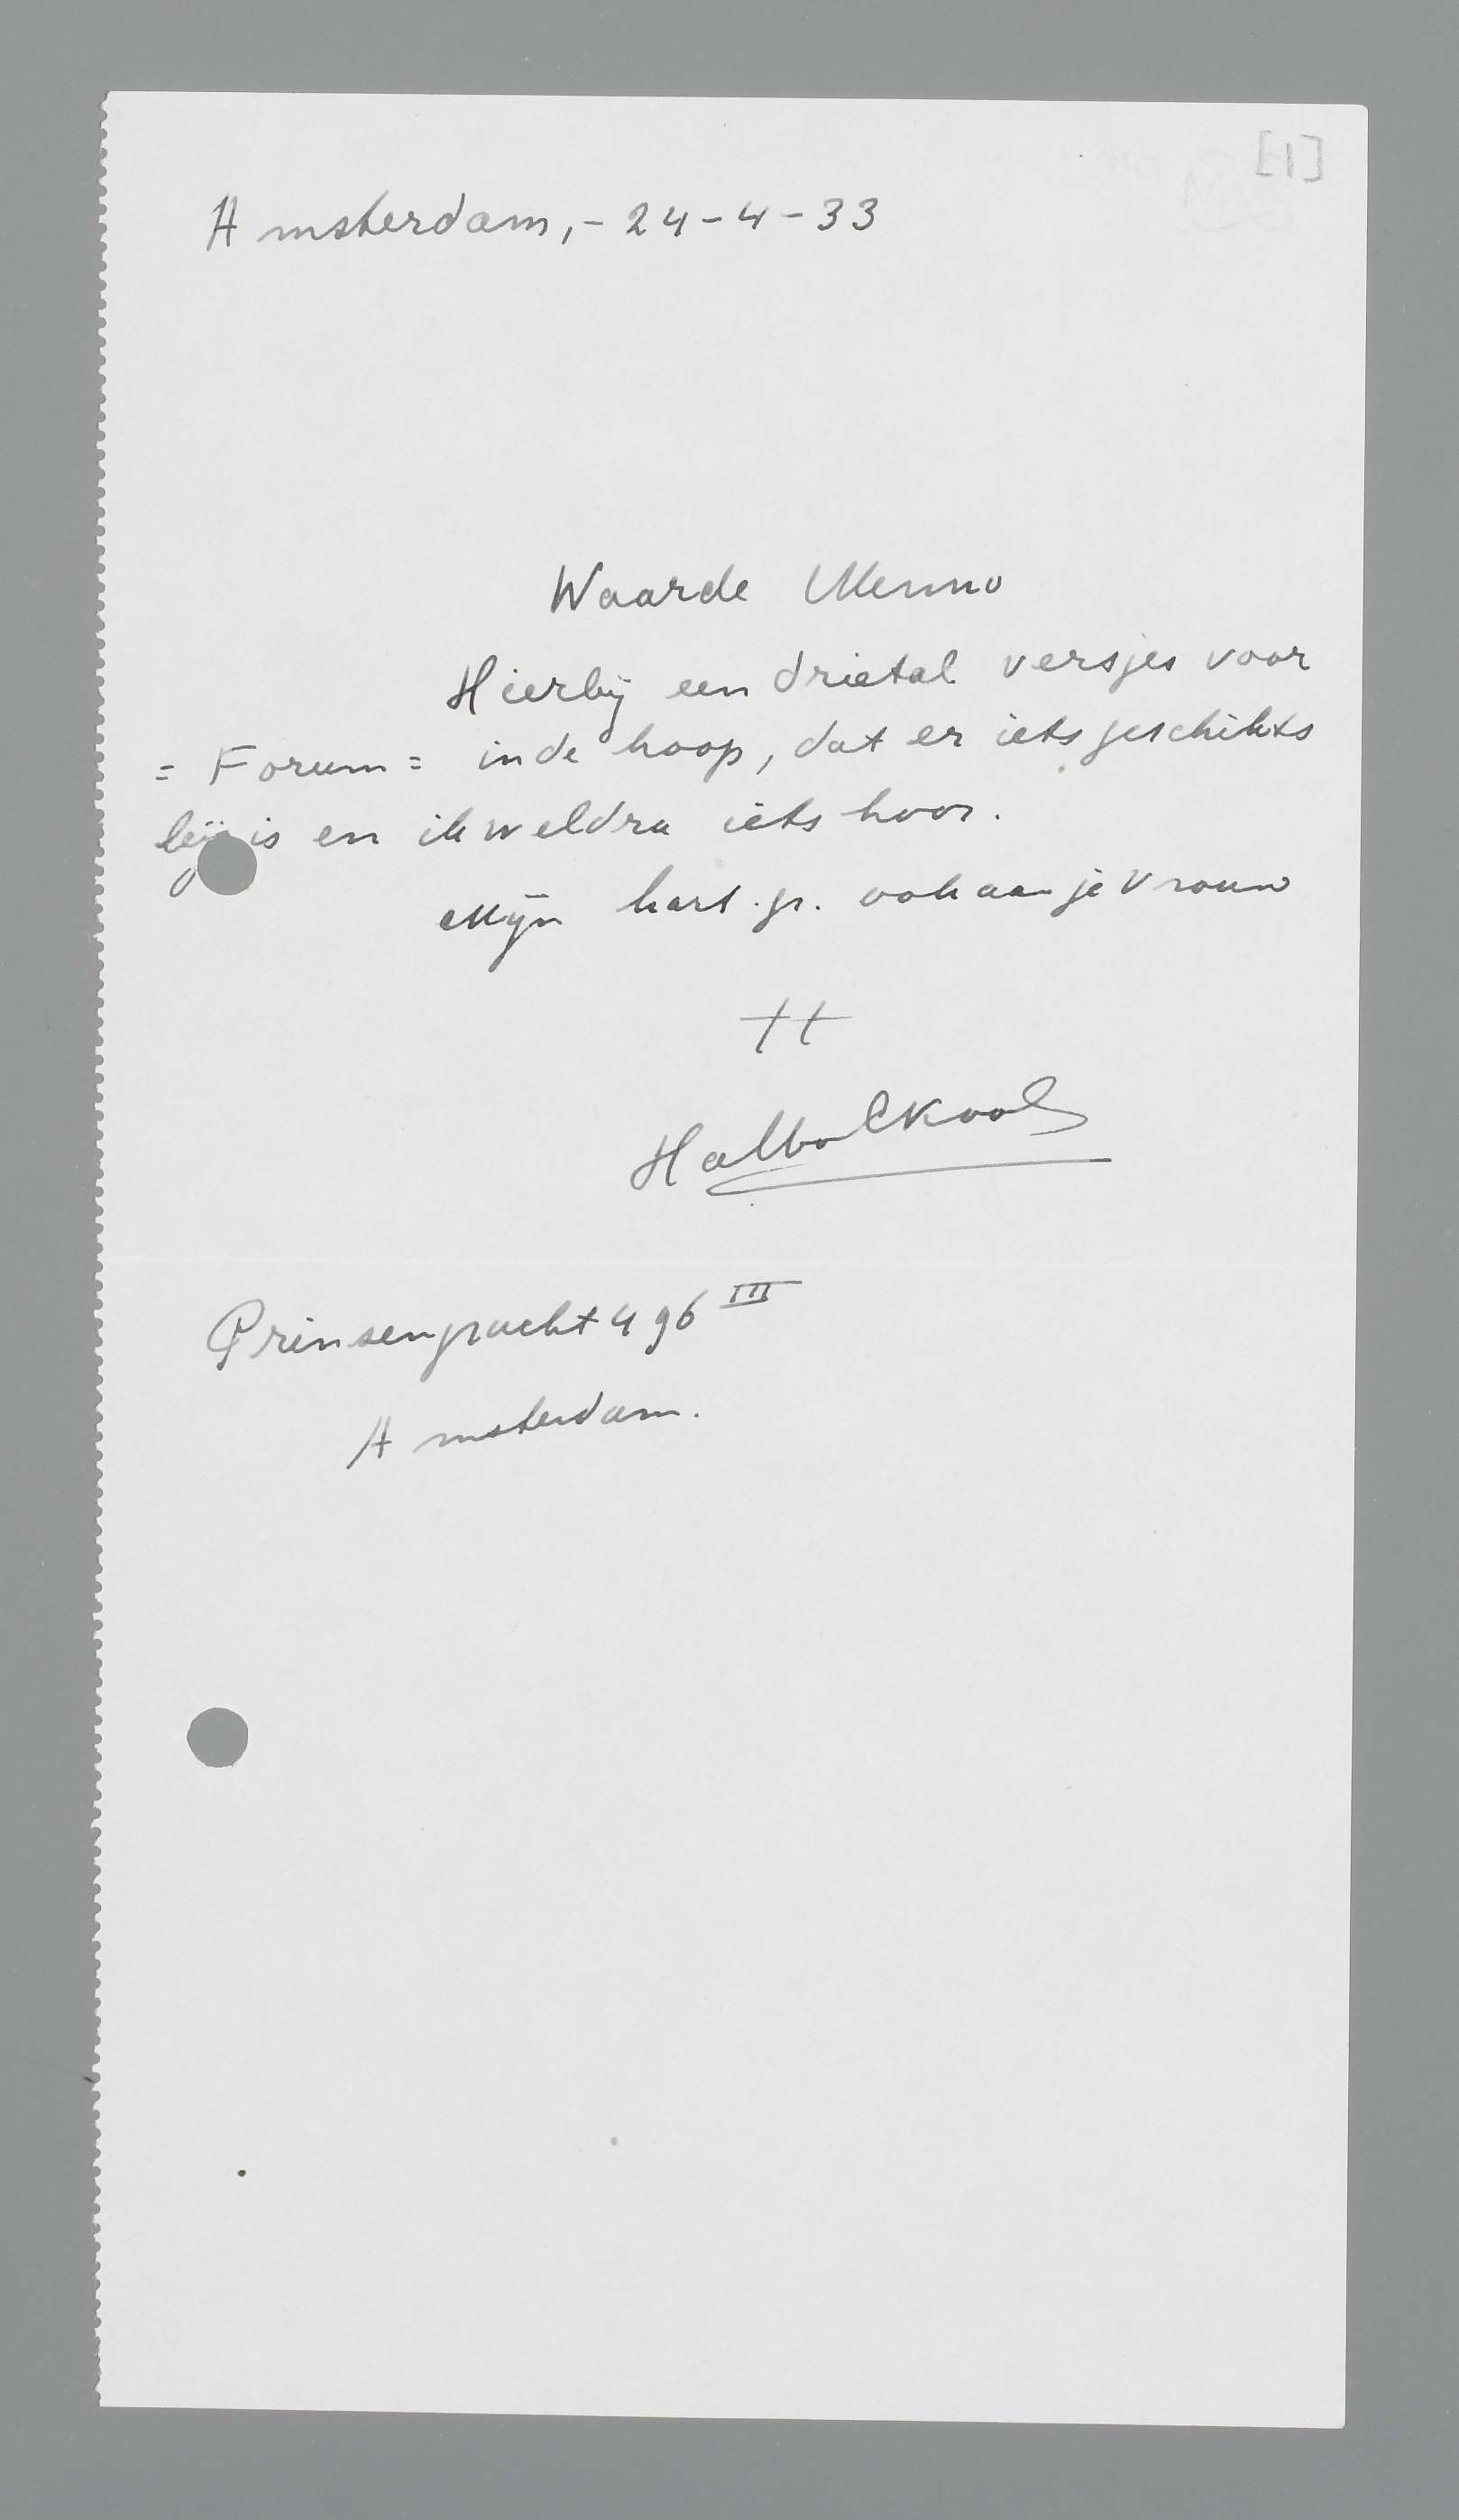 [1]
Amsterdam,- 24-4-33
Waarde Menno
Hierbij een drietal versjes voor
= Forum = in de hoop, dat er iets geschikts
bij is en ik weldra iets hoor.
Mijn hart. gr. ook aan je vrouw
tt
Halbo C Kool
Prinsengracht 496 III
Amsterdam.